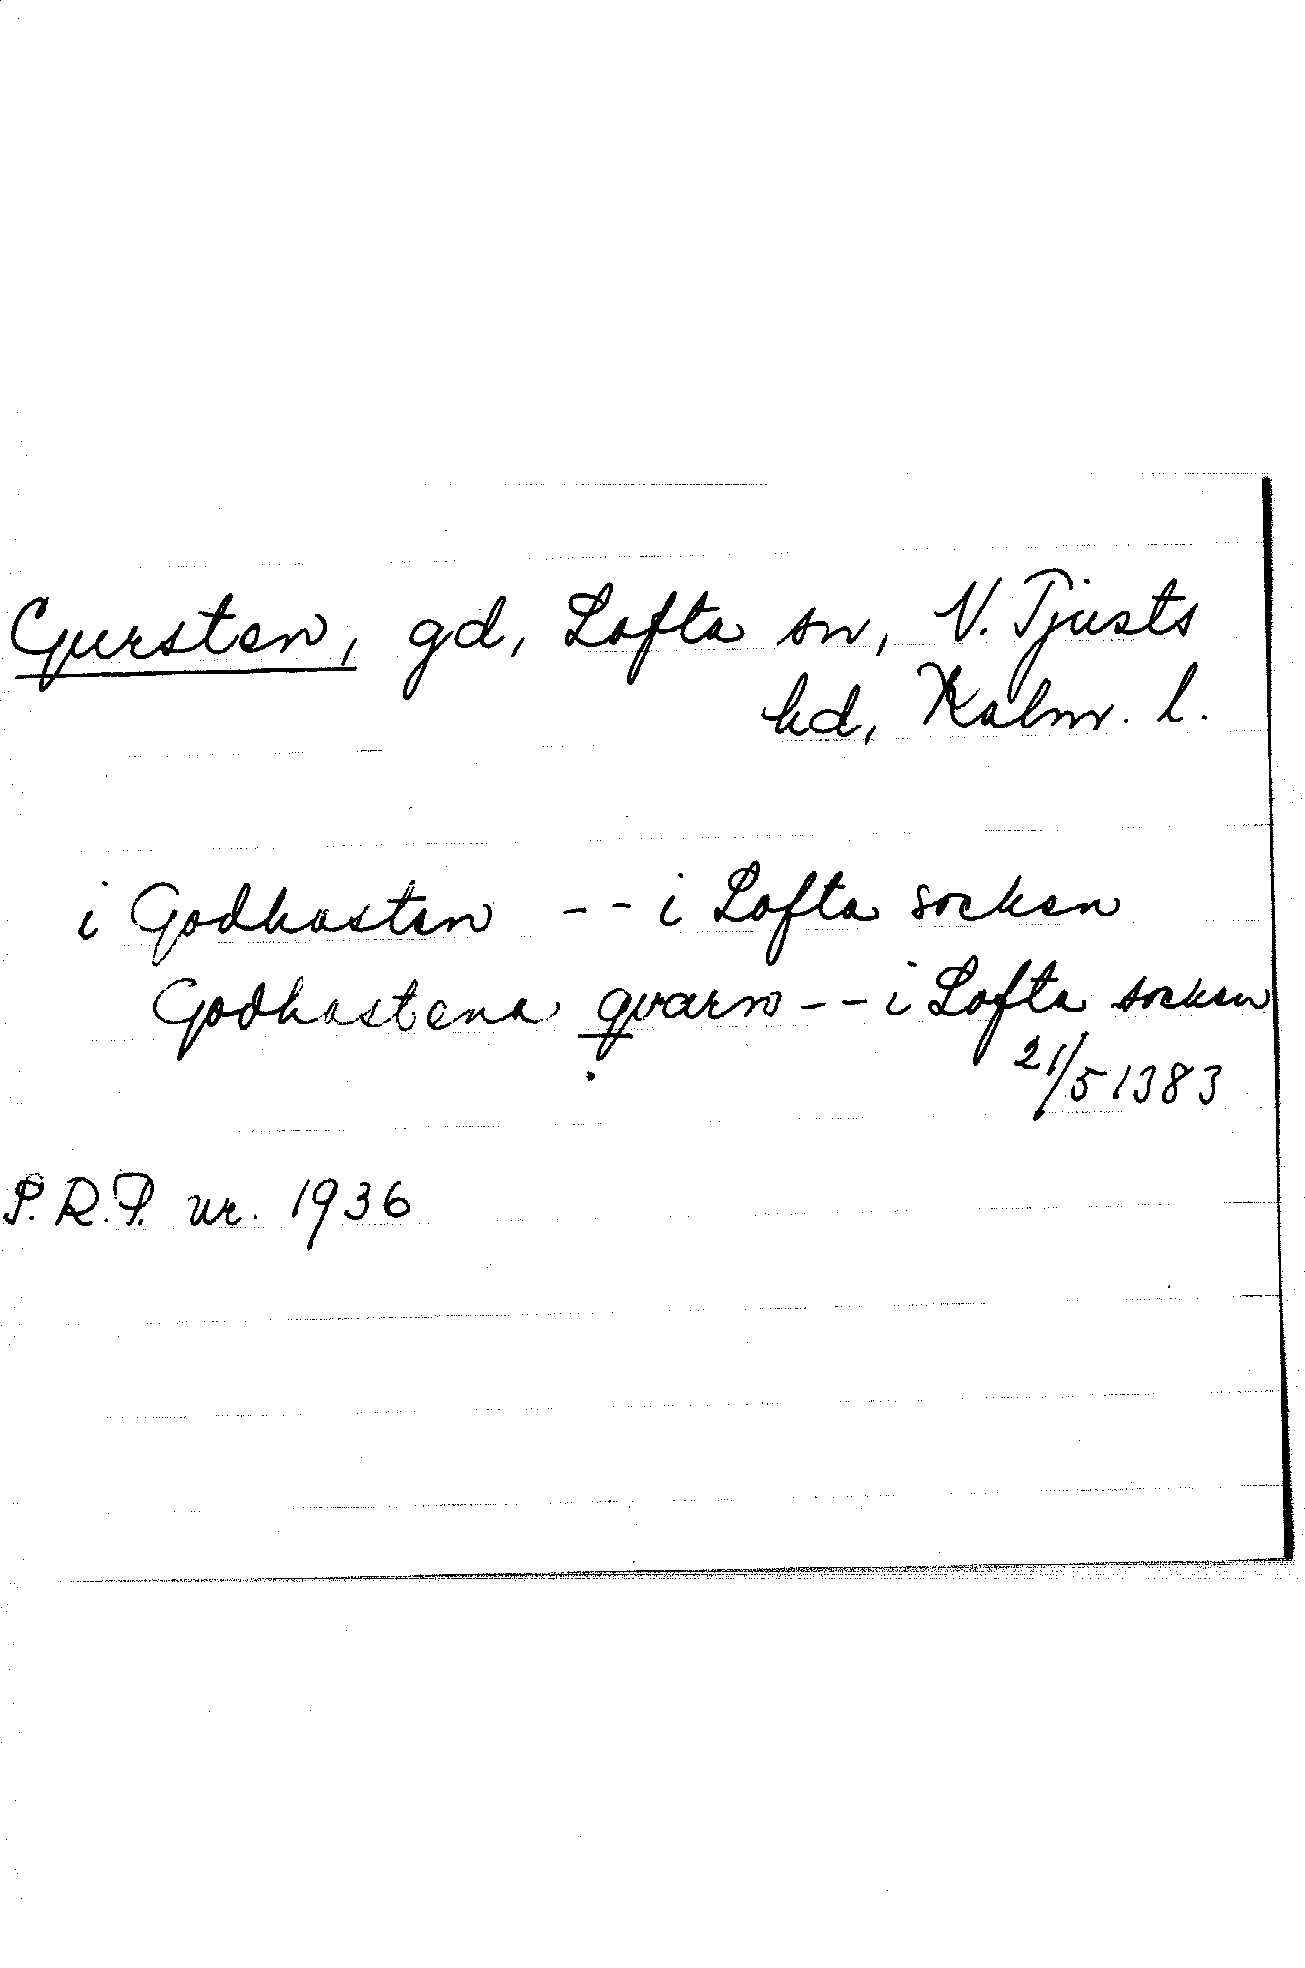 Gursten, gd, Lofta sn, N. Tjusts
hd, Kalm. l.
i Godhasten -- i Lofta socken
Godhastena qvarn -- i Lofta socken
21/5 1383
P.R.P. nr. 1936